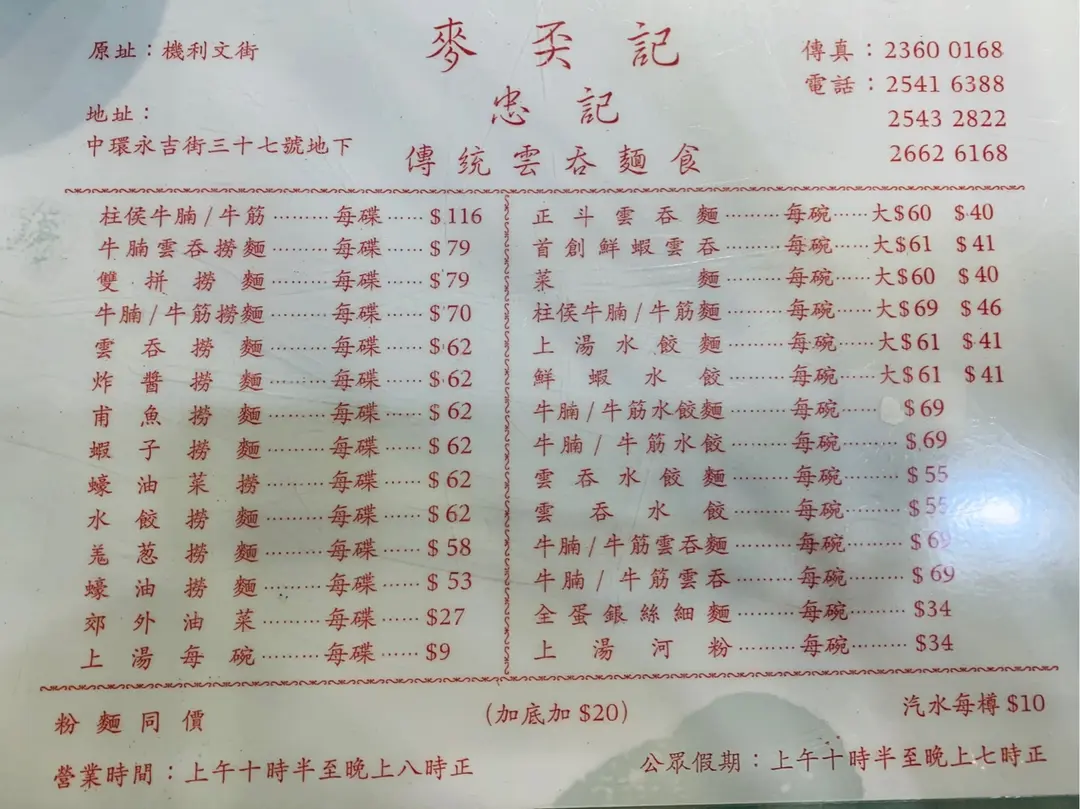 原址：機利文街
麥奀記
忠記
傳統雲吞麵食
地址：
中環永吉街三十七號地下
傳真：2360 0168
電話：2541 6388
2543 2822
2662 6168
柱侯牛腩/牛筋………每碟……$116
牛腩雲吞撈麵………每碟……$79
雙拼撈麵………每碟……$79
牛腩/牛筋撈麵………每碟……$70
雲吞撈麵………每碟……$62
炸醬撈麵………每碟……$62
甫魚撈麵………每碟……$62
蝦子撈麵………每碟……$62
蠔油菜撈………每碟……$62
水餃撈麵………每碟……$62
羗葱撈麵………每碟……$58
蠔油撈麵………每碟……$53
郊外油菜………每碟……$27
上湯每碗………每碟……$9
正斗雲吞麵………每碗……大$60 $40
首創鮮蝦雲吞………每碗……大$61 $41
菜麵………每碗……大$60 $40
柱侯牛腩/牛筋麵………每碗……大$69 $46
上湯水餃麵………每碗……大$61 $41
鮮蝦水餃………每碗……大$61 $41
牛腩/牛筋水餃麵………每碗………$69
牛腩/牛筋水餃………每碗………$69
雲吞水餃麵………每碗………$55
雲吞水餃………每碗………$55
牛腩/牛筋雲吞麵………每碗………$69
牛腩/牛筋雲吞………每碗………$69
全蛋銀絲細麵………每碗………$34
上湯河粉………每碗………$34
粉麵同價
(加底加 $20)
汽水每樽 $10
營業時間：上午十時半至晚上八時正
公眾假期：上午十時半至晚上七時正